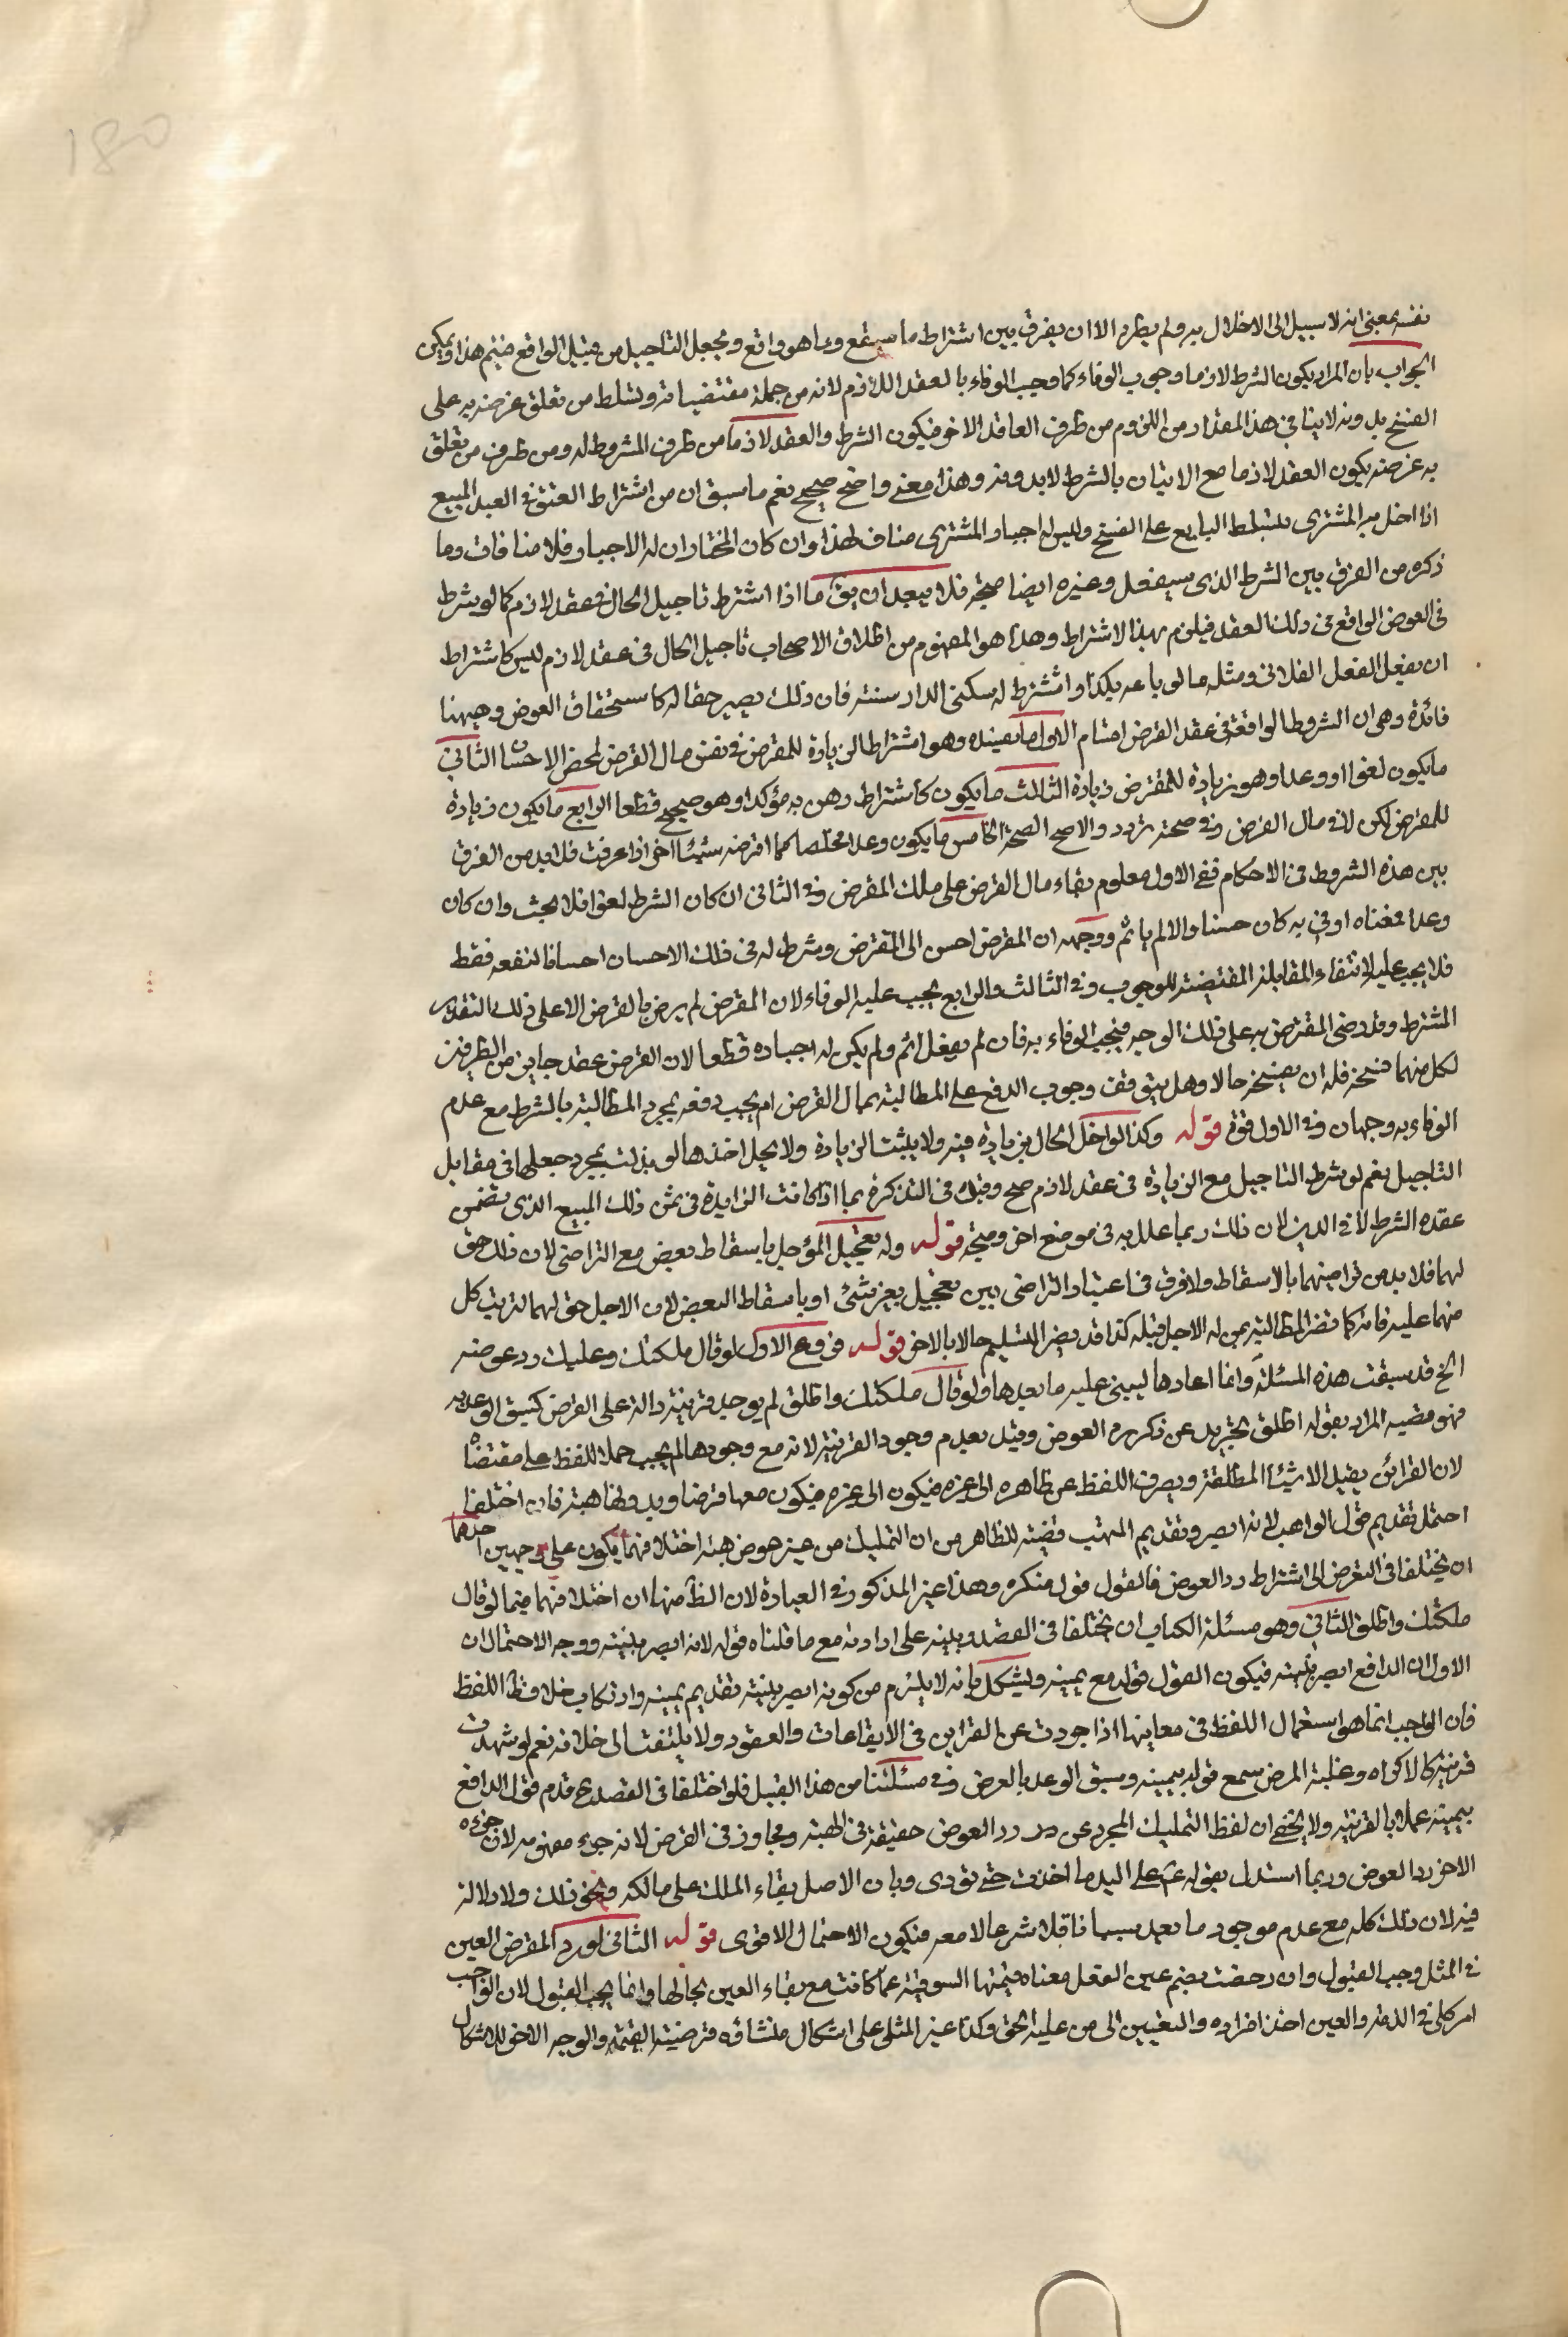 180
نفسه بمعنى انه لا سبيل الى الاخلال به ولم يطرد الا ان يفرق بين اشتراط ما سيقع وما هو واقع ويجعل التاجيل من قبيل الواقع فيتم هذا ويمكن
الجواب بان المراد بكون الشرط لازما وجوب الوفاء كما يجب الوفاء بالعقد اللازم لانه من جملة مقتضياته وتسلط من تعلق غرضه به على
الفسخ بدونه لا ينافى هذا المقدار من اللزوم من طرف العاقد الاخر فيكون الشرط والعقد لازما من طرف المشروط له ومن طرف من تعلق
به غرضه يكون العقد لازما مع الاتيان بالشرط لا بدونه وهذا معنى واضح صحيح نعم ما سبق ان من اشتراط العتق فى العبد المبيع
اذا اخل به المشترى يتسلط البايع على الفسخ وليس له اجبار المشترى مناف لهذا وان كان المختار ان له الاجبار فلا منافات وما
ذكره من الفرق بين الشرط الذى سيفعل وغيره ايضا صحيح فلا يبعد ان يق ما اذا اشترط تاجيل الحال فى عقد لازم كما لو شرط
فى العوض الواقع فى ذلك العقد فيلزم بهذا الاشتراط وهذا هو المفهوم من اطلاق الاصحاب تاجيل الحال فى عقد لازم ليس كاشتراط
ان يفعل الفعل الفلانى ومثله ما لو باعه بكذا واشترط له سكنى الدار سنة فان ذلك يصير حقا له كاستحقاق العوض وههنا
فائدة وهى ان الشروط الواقعة فى عقد القرض اقسام الاول ما يفسده وهو اشتراط الزيادة للمقرض فى نفس مال القرض لمحض الاحسان الثانى
ما يكون لغوا او وعدا وهو زيادة للمقترض زيادة الثالث ما يكون كاشتراط رهن به مؤكدا وهو صحيح قطعا الرابع ما يكون زيادة
للمقرض لكن لا فى مال القرض وفى صحته تردد والاصح الصحة الخامس ما يكون وعدا محضا كما اقرضه شيئا اخر اذا عرفت فلا بد من الفرق
بين هذه الشروط فى الاحكام ففى الاول معلوم بقاء مال القرض على ملك المقرض وفى الثانى ان كان الشرط لغوا فلا بحث وان كان
وعدا فمعناه ان وفى به كان حسنا والا لم ياثم ووجهه ان المقرض احسن الى المقترض وشرط له فى ذلك الاحسان احسانا لنفعه فقط
فلا يجب عليه لانتفاء المقابلة المقتضية للوجوب وفى الثالث والرابع يجب عليه الوفاء لان المقرض لم يرض بالقرض الا على ذلك التقدير
المشترط وقد رضى المقترض به على ذلك الوجه فيجب الوفاء به فان لم يفعل اثم ولم يكن له اجباره قطعا لان القرض عقد جايز من الطرفين
لكل منهما فسخه فله ان يفسخ حالا وهل يتوقف وجوب الدفع على المطالبة بمال القرض ام يجب دفعه بمجرد المطالبة بالشرط مع عدم
الوفاء به وجهان وفى الاول قوة قوله وكذا لو اخل الحال بزيادة فيه ولا يثبت الزيادة ولا يحل اخذها لو بذلت بمجرد جعلها فى مقابل
التاجيل نعم لو شرط التاجيل مع الزيادة فى عقد لازم صح وقيده فى التذكرة بما اذا كانت الزايدة فى ثمن ذلك المبيع الذى تضمن
عقده الشرط لا فى الدين لان ذلك ربما علل به فى موضع اخر وصحته قوله وله تعجيل المؤجل باسقاط بعض مع التراضى لان ذلك حق
لهما فلا بد من تراضيهما بالاسقاط ولا فرق فى اعتبار التراضى بين تعجيل بغير شئ او باسقاط البعض لان الاجل حق لهما لترتب كل
منهما عليه فانه كما تضر المطالبة بمن له الاجل قبله كذا قد يضر التسليم حالا بالاخر قوله فروع الاول لو قال ملكتك وعليك رد عوضه
الخ قد سبقت هذه المسئلة وانما اعادها ليبنى عليه ما بعدها ولو قال ملكتك واطلق لم يوجد قرينة دالة على القرض كسبق الوعد به
فهو هبة المراد بقوله اطلق تجريده عن ذكر رد العوض وقيد بعدم وجود القرينة لانه مع وجودها لم يجب حمل اللفظ على مقتضاه
لان القرائن يقيد الاشياء المطلقة ويصرف اللفظ عن ظاهره الى غيره فيكون الى غيره فيكون معها قرضا وبدونها هبة فان اختلفا
احتمل تقديم قول الواهب لانه ابصر وتقديم المتهب قضية للظاهر من ان التمليك من غير عوض هبة اختلافهما يكون على وجهين احدهما
ان يختلفا فى التعرض الى اشتراط رد العوض فالقول قول منكره وهذا غير المذكور فى العبارة لان الظ منها ان اختلافهما فيما لو قال
ملكتك واطلق الثانى وهو مسئلة الكتاب ان يختلفا فى القصد وبنيه على ارادته مع ما قلناه قوله لانه ابصر بنيته ووجه الاحتمال ان
الاول ان الدافع ابصر بنيته فيكون القول قوله مع يمينه ويشكل بانه لا يلزم من كونه ابصر بنيته تقديم يمينه وارتكاب خلاف ظ اللفظ
فان الواجب انما هو استعمال اللفظ فى معاينها اذا جردت عن القراين فى الايقاعات والعقود ولا يلتفت الى خلافه نعم لو شهدت
قرينة كالاكراه وغلبة المرض سمع قوله بيمينه وسبق الوعد بالعرض وفى مسئلتنا من هذا القبيل فلو اختلفا فى القصد ح قدم قول الدافع
بيمينه عملا بالقرينة ولا يخفى ان لفظ التمليك المجرد عن رد العوض حقيقة فى الهبة ومجاوز فى القرض لانه جزء مفهومه لان جزءه
الاخر رد العوض وربما استدل بقوله ع على اليد ما اخذت حتى تؤدى وبان الاصل بقاء الملك على مالكه ونحو ذلك ولا دلالة
فيه لان ذلك كله مع عدم موجود ما يعد سببا ناقلا شرعا لا معه فيكون الاحتمال الاقوى قوله الثانى لو رد المقرض العين
فى المثل وجب القبول وان رخصت بضم عين الفعل معناه قيمتها السوقية عما كانت مع بقاء العين بحالها وانما يجب القبول لان الواجب
امر كلى فى الذمة والعين احد افراده والتعيين الى من عليه الحق وكذا غير المثلى على اشكال منشاؤه قرضيته القيمة والوجه الاخر للاشكال